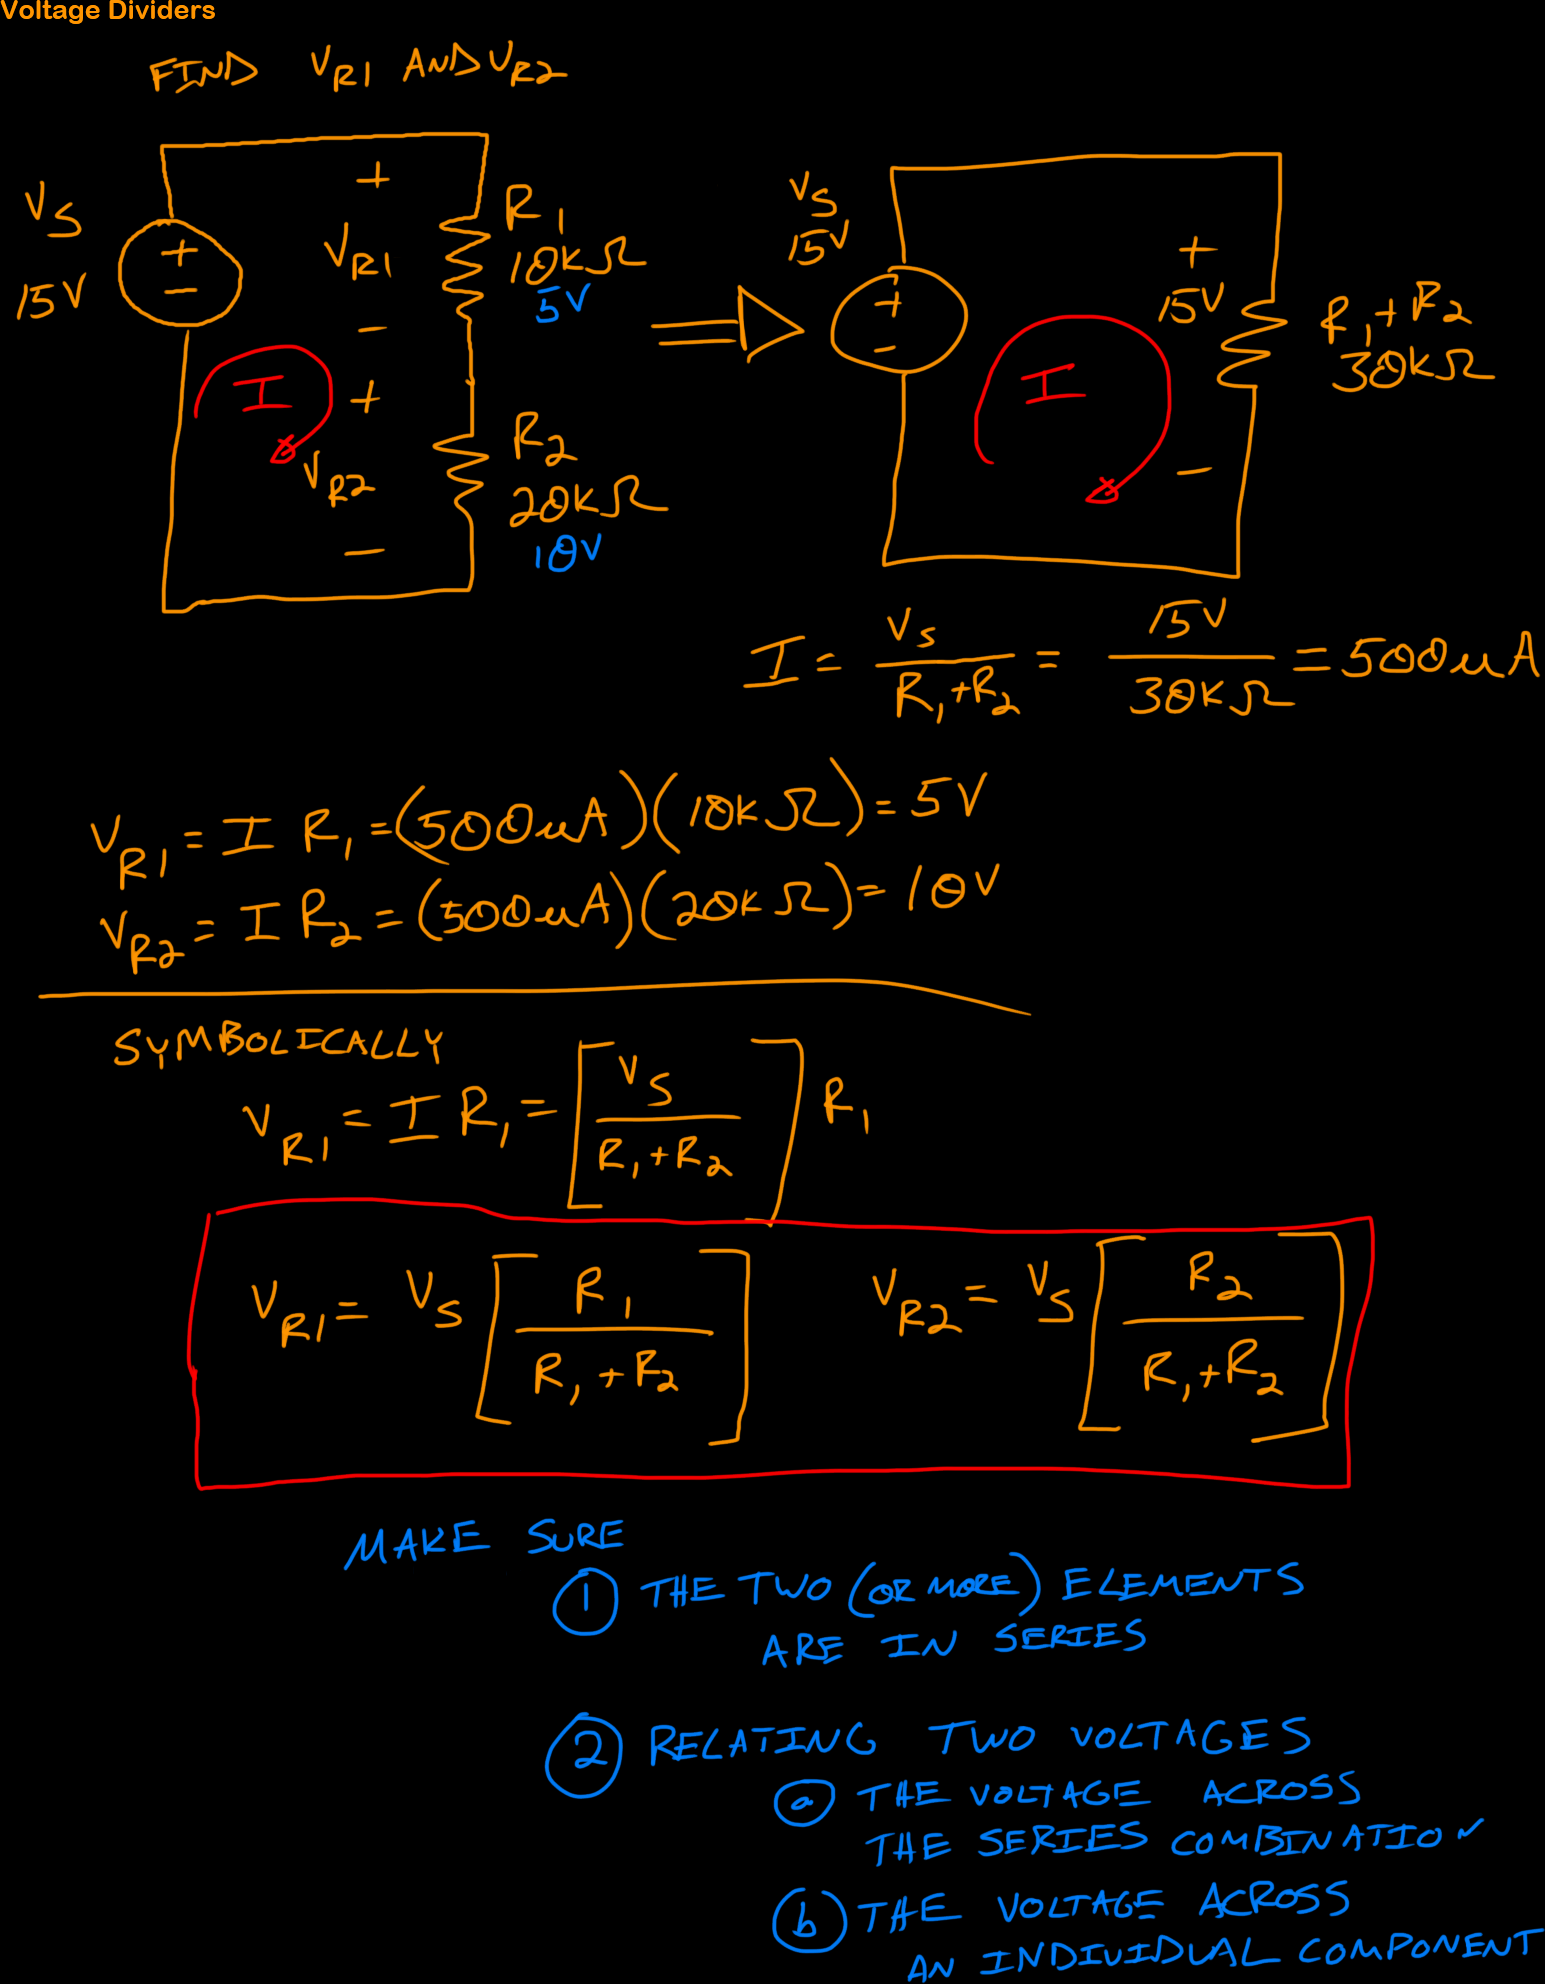 Voltage Dividers
FIND VR1 AND VR2
+
VS
15V
+
−
VR1
−
R1
10KΩ
5V
I
+
VR2
−
R2
20KΩ
10V
VS
15V
+
−
I
+
15V
−
R1+R2
30KΩ
I = VS / (R1+R2) = 15V / 30KΩ = 500uA
VR1 = I R1 = (500uA)(10KΩ) = 5V
VR2 = I R2 = (500uA)(20KΩ) = 10V
SYMBOLICALLY
VR1 = I R1 = [VS / (R1+R2)] R1
VR1 = VS [R1 / (R1+R2)] VR2 = VS [R2 / (R1+R2)]
MAKE SURE
1 THE TWO (OR MORE) ELEMENTS
ARE IN SERIES
2 RELATING TWO VOLTAGES
a THE VOLTAGE ACROSS
THE SERIES COMBINATION
b THE VOLTAGE ACROSS
AN INDIVIDUAL COMPONENT